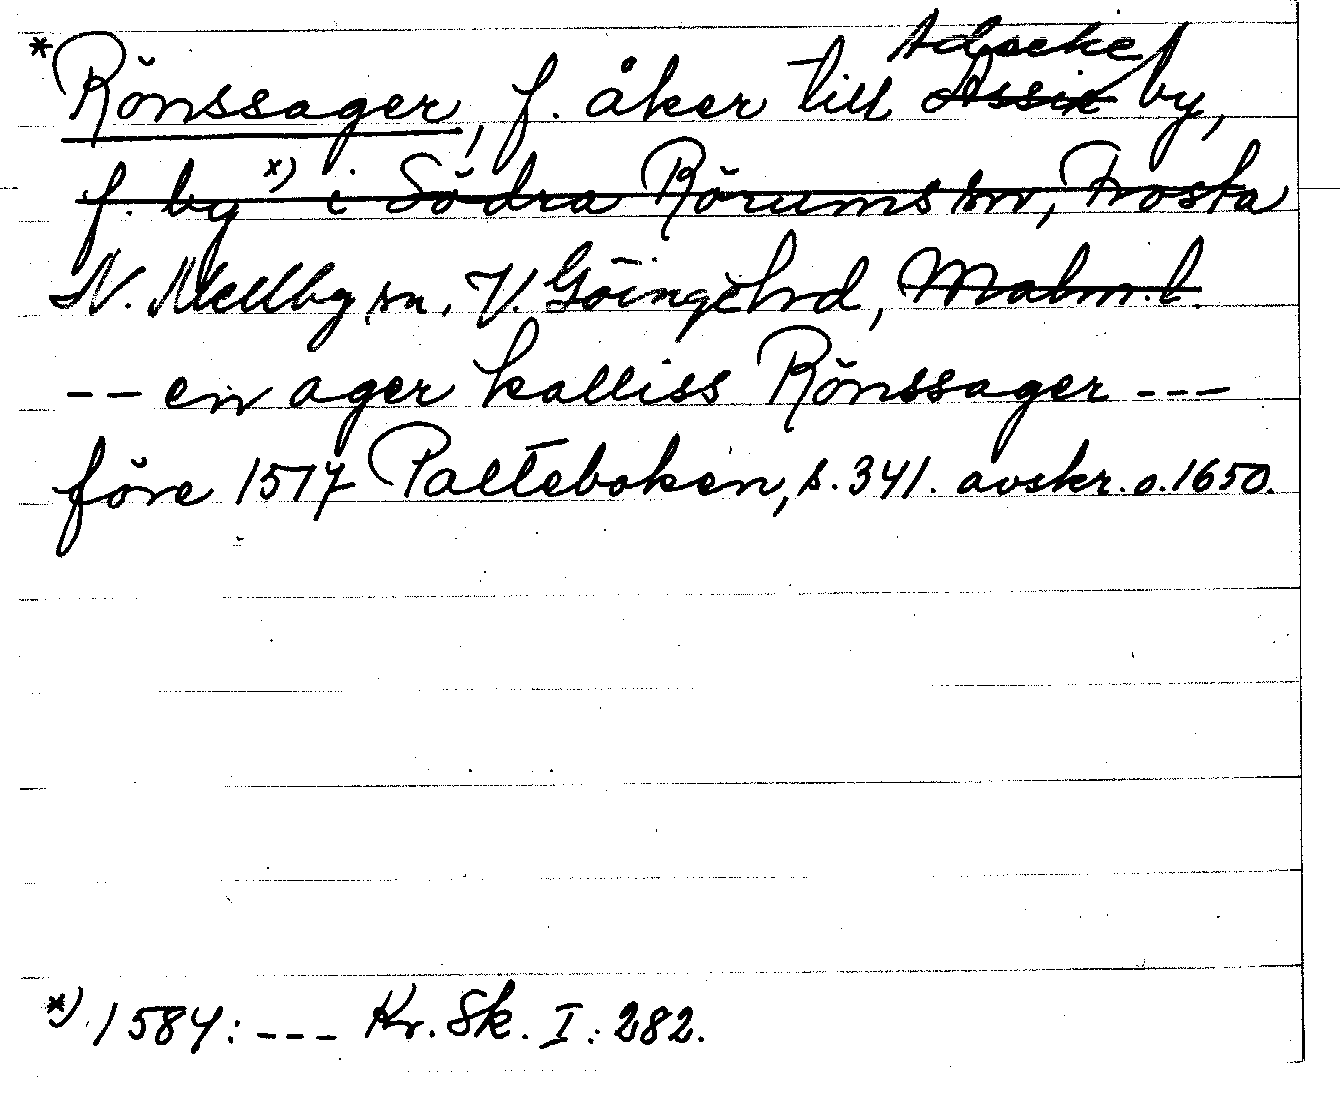 * Rönssager, f. åker till Assie Adseke by,
f. by x) i Södra Rörums sn, Frosta
N. Mellby sn, V. Göinge hrd, Malm. l.
-- en ager kalliss Rönssager ---
före 1517 Palteboken, s. 341. avskr. o. 1650.
*) 1584: --- Kr. Sk. I: 282.